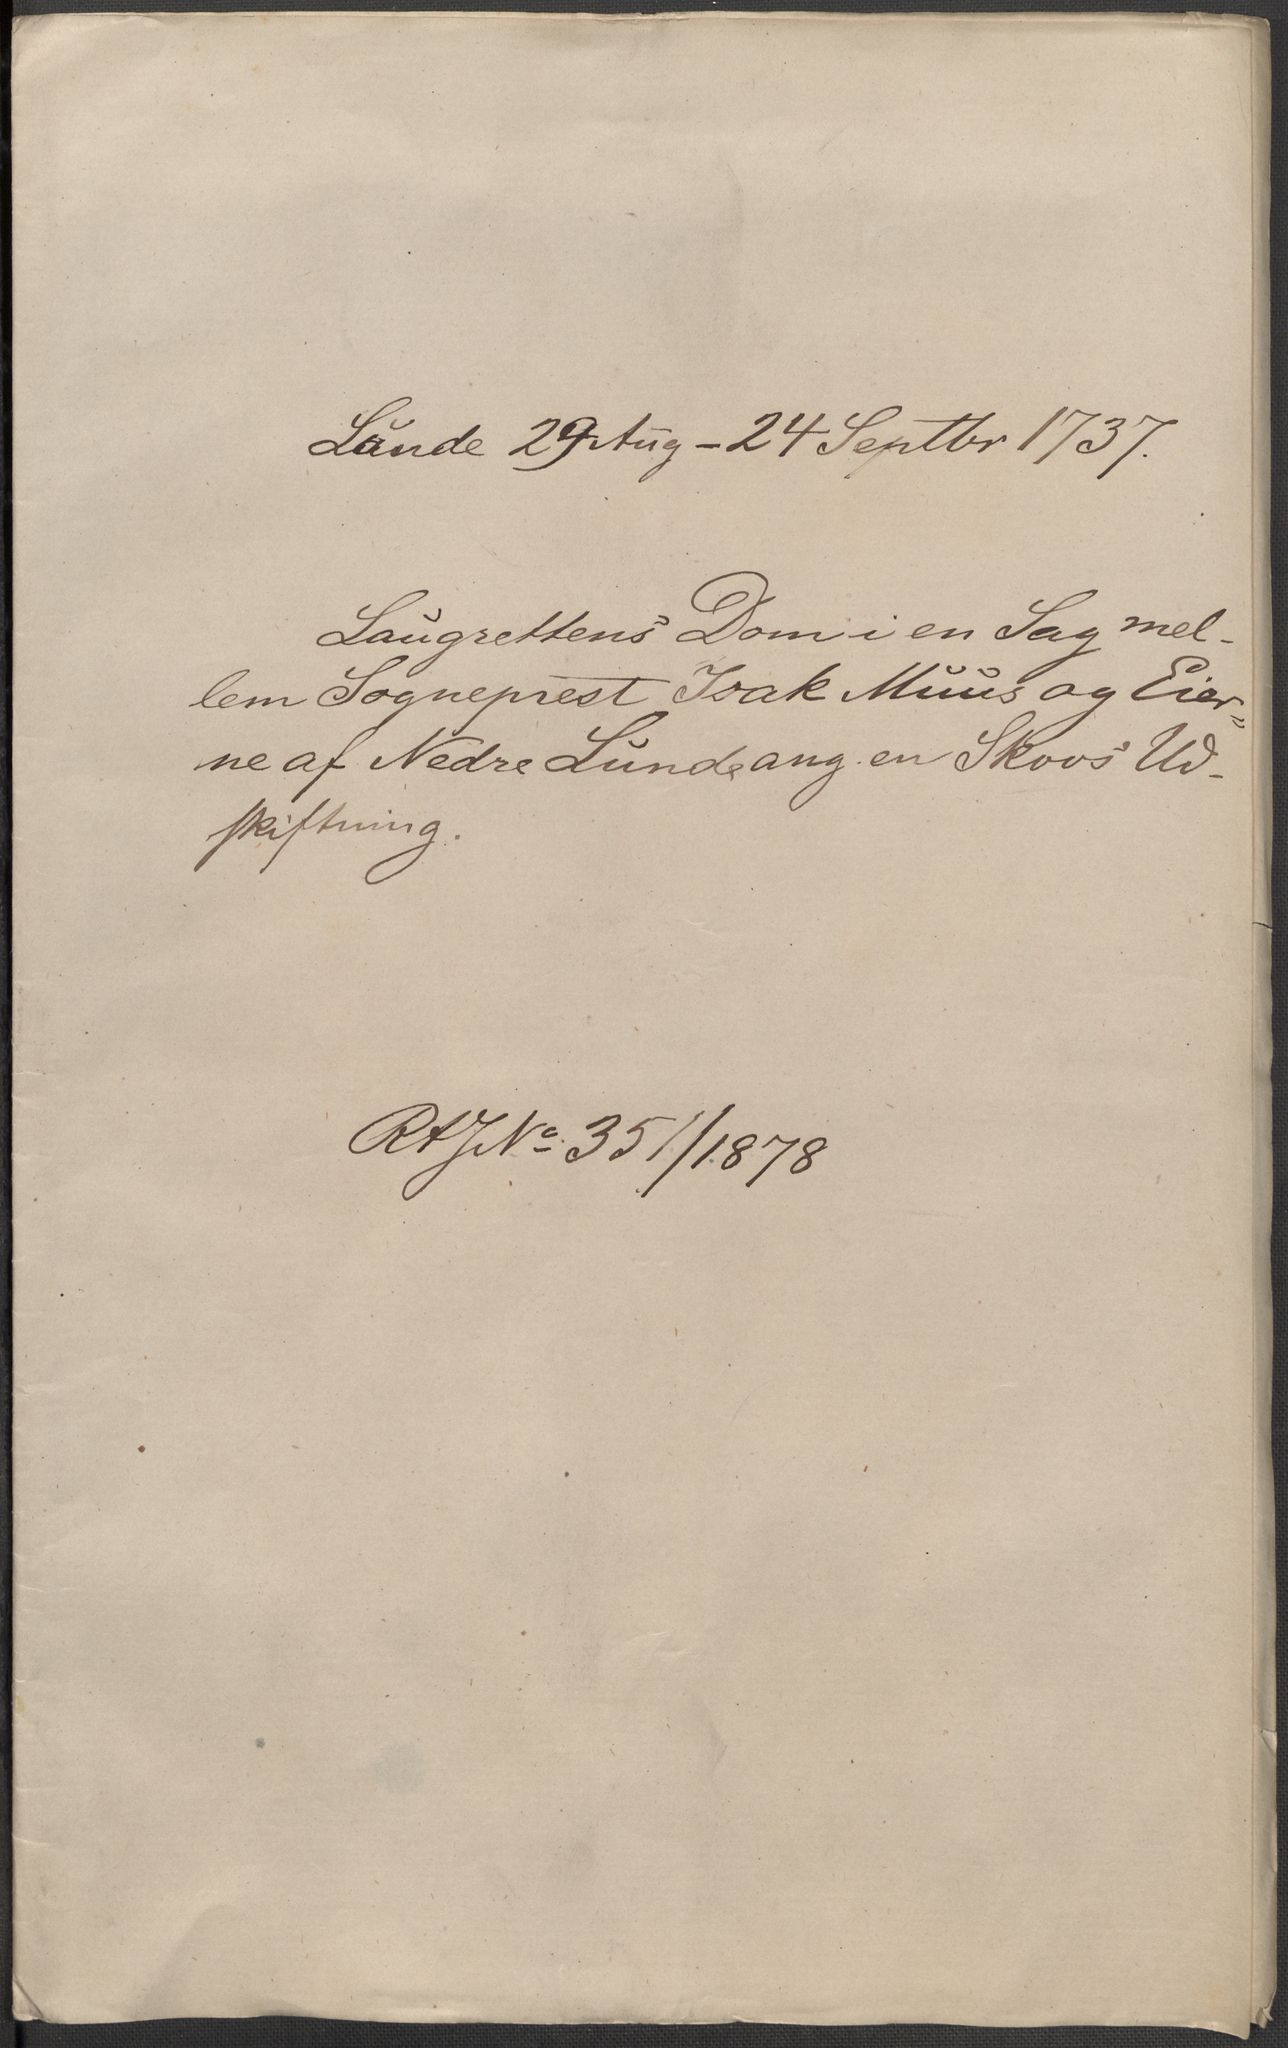 Lunde 29 Aug – 24 Septbr 1737.
Laugrettens Dom i en Sag mel-
lem Sogneprest Isak Muus og Eier-
ne af Nedre Lunde ang. en Skovs Ud-
skiftning.
RAJNo. 351/1878